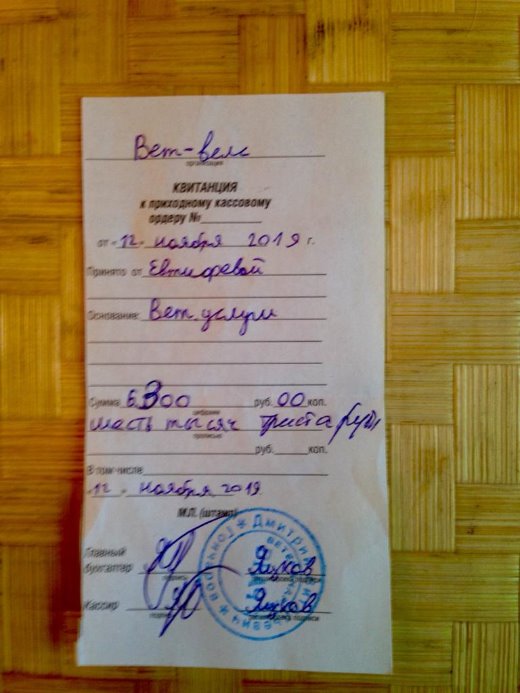 Вет-велс
организация
КВИТАНЦИЯ
к приходному кассовому
ордеру №
от «12» ноября 2019 г.
Принято от Евтифеевой
Основание: Вет. услуги
Сумма 6300 руб. 00 коп.
цифрами
шесть тысяч триста рубл
прописью
руб. коп.
В том числе
«12» ноября 2019
М.П. (штампа)
Главный
бухгалтер Яцков
подпись расшифровка подписи
Кассир Яцков
подпись расшифровка подписи